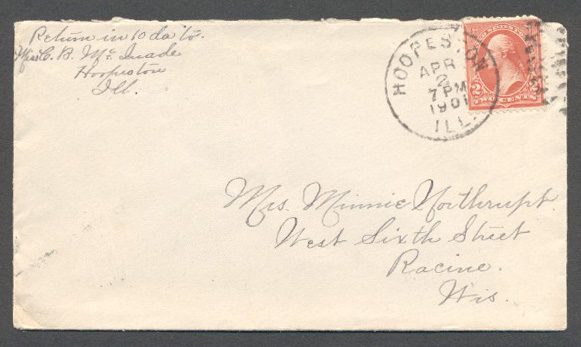 Return in 10 da to.
Mrs C. B. Mc Quade
Hoopeston
Ill.
HOOPESTON
APR
2
7 PM
1901
ILL.
2 2
TWO CENTS
Mrs. Minnie Northrupt.
West Sixth Street
Racine.
Wis.